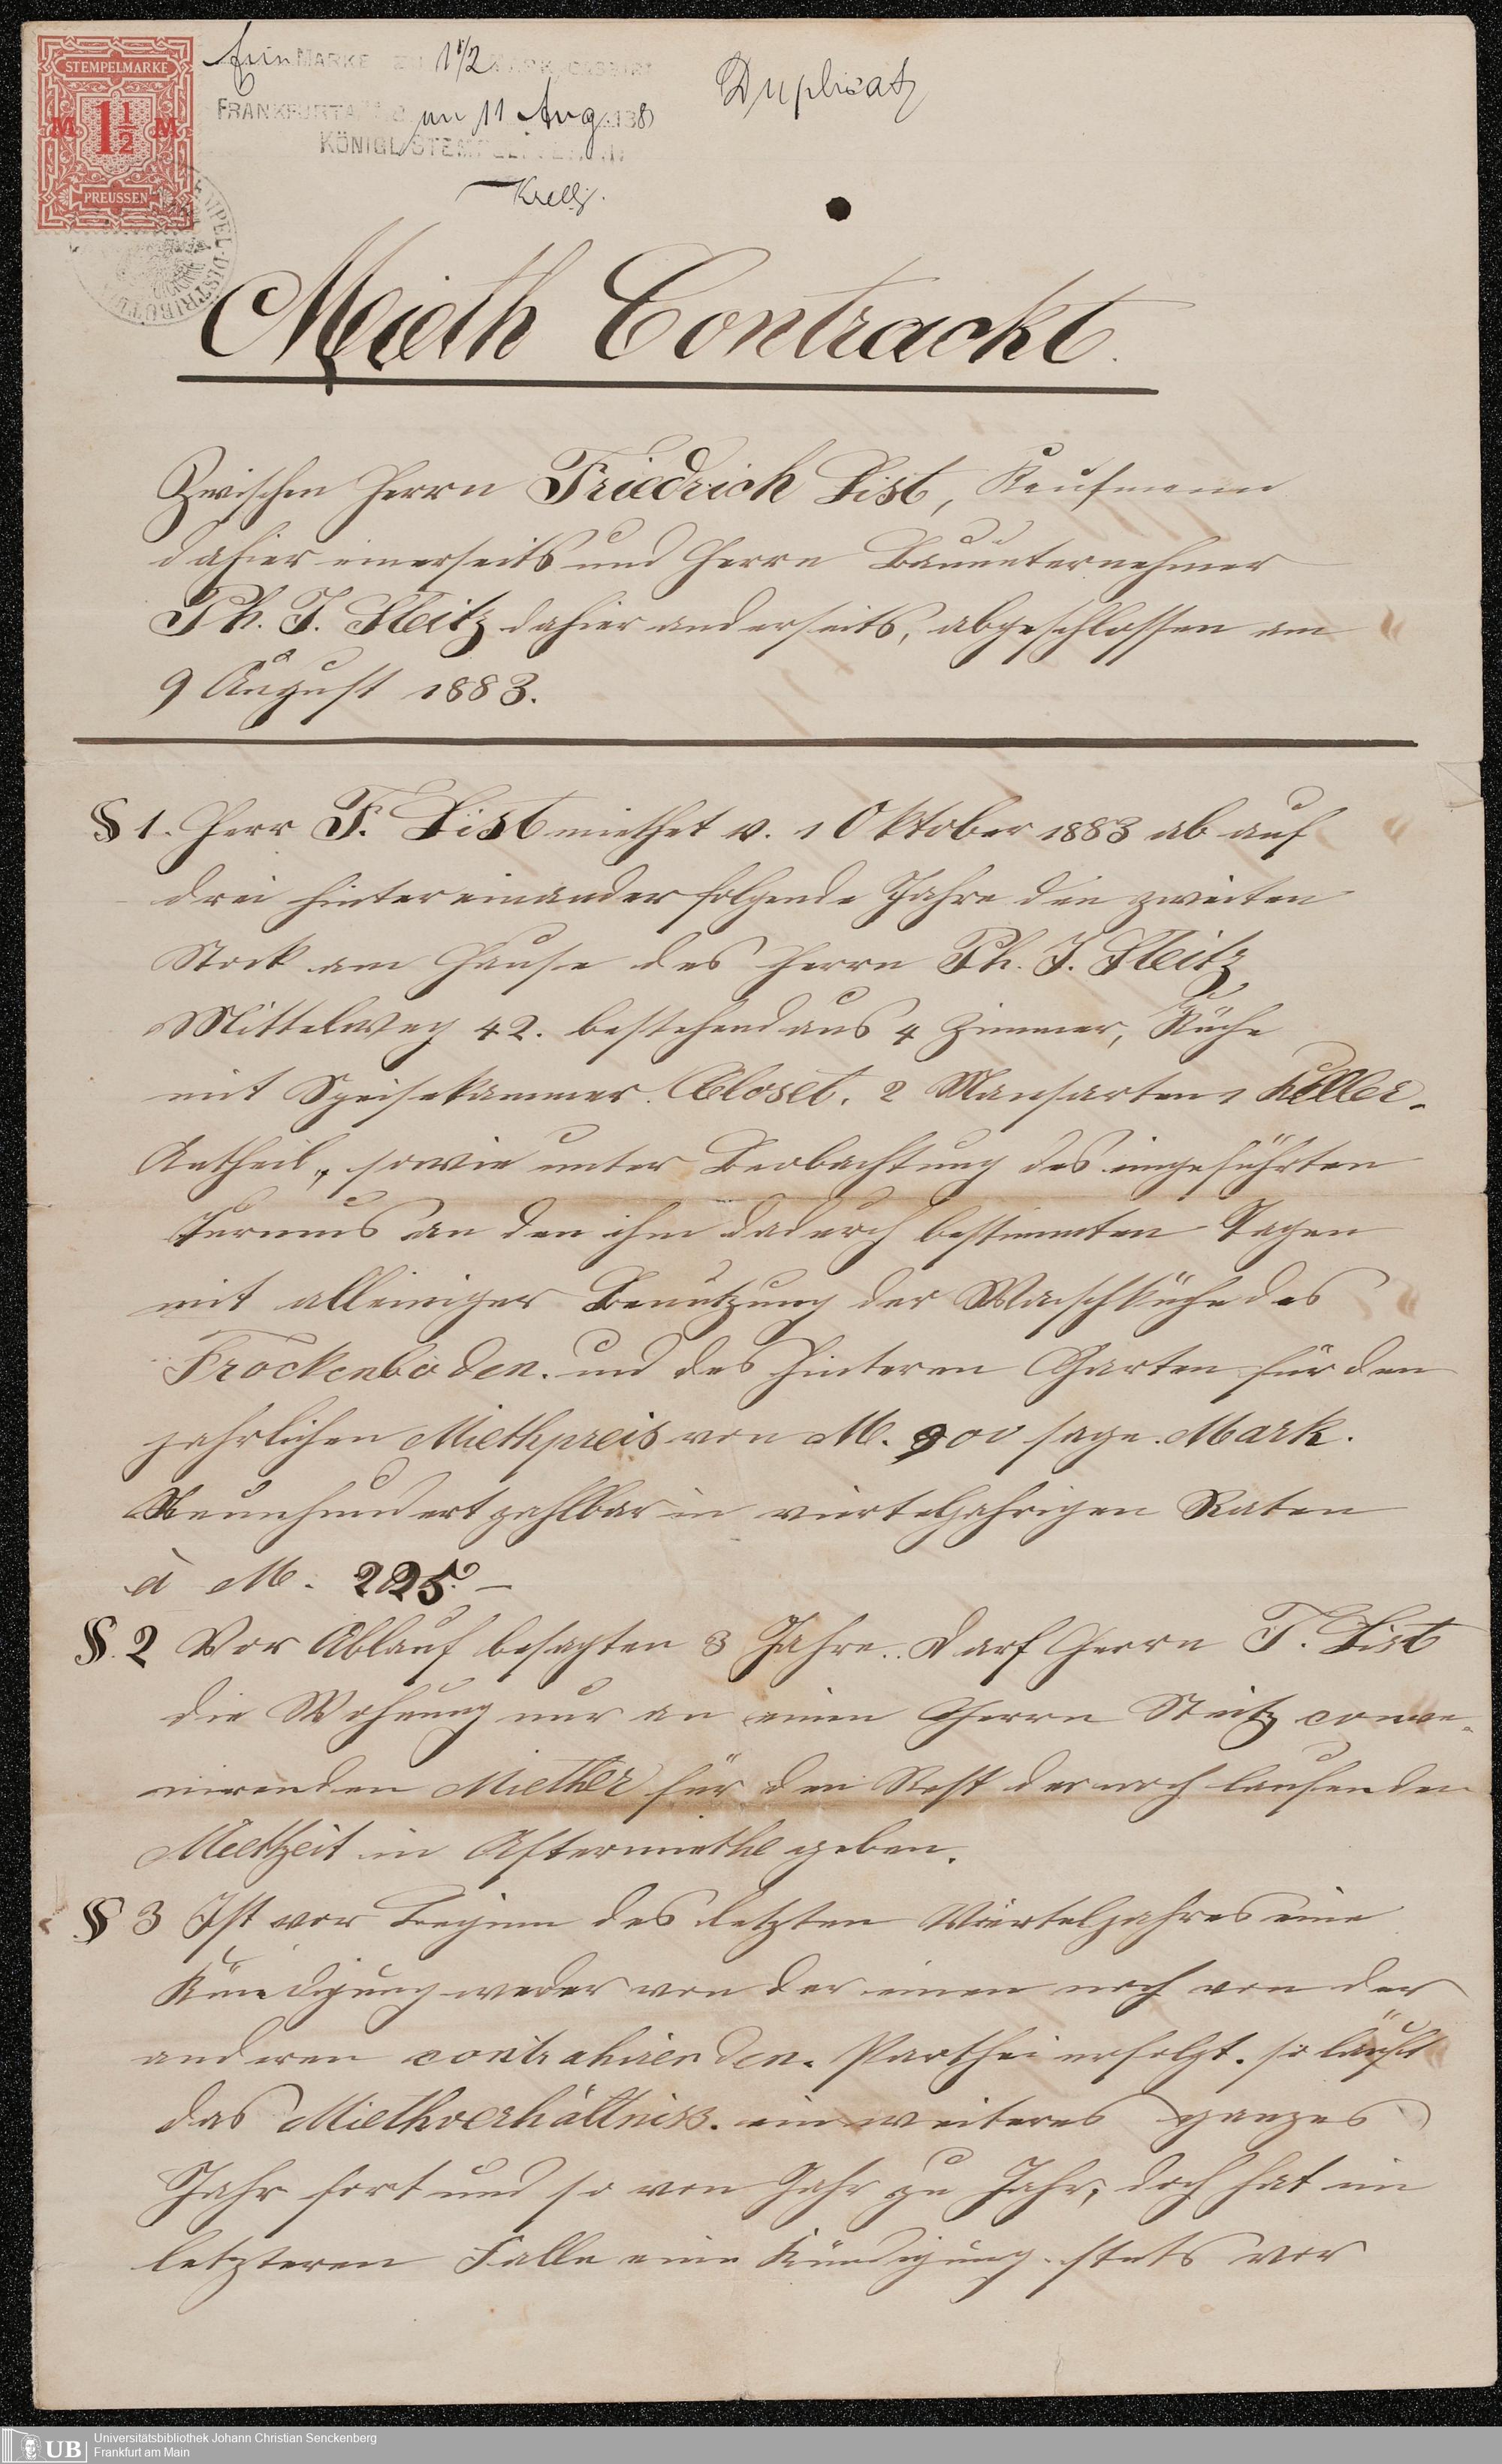 STEMPELMARKE
M 1½ M
PREUSSEN
Ein MARKE ZU 1½ MARK CASSIRT
FRANKFURT A/M den 11 Aug. 188
KÖNIGL. STEMPEL
Duplicat
STEMPEL-DISTRIBUTEUR
Mieth Contrackt.
Zwischen Herrn Friedrich List, Kaufmann
dahier einerseits und Herrn Bauunternehmer
Ph. J. Steitz dahier anderseits, abgeschlossen am
9 August 1883.
§ 1. Herr F. List miethet v. 1 Oktober 1883 ab auf
drei hintereinander folgende Jahre den zweiten
Stock am Hause des Herrn Ph. J. Steitz
Mittelweg 42. bestehend aus 4 Zimmer, Küche
mit Speisekammer. Closet. 2 Mansarten 1 Keller-
Antheil, sowie unter Beobachtung des eingeführten
Turnus an den ihm dadurch bestimmten Tagen
mit alleiniger Benutzung der Waschküche des
Trockenboden. und des hinteren Garten für den
jahrlichen Miethpreis von M. 900 sage. Mark.
Neunhundert zahlbar in vierteljahrigen Raten
à M. 225. –
§. 2 Vor Ablauf besagten 3 Jahre.. darf Herrn F. List
die Wohnung nur an einen Herrn Steitz conve-
nirenden Miether für den Rest der noch laufenden
Miethzeit in Aftermiethe geben.
§ 3 Ist vor Beginn des letzten Vierteljahres eine
Kündigung weder von der einen noch von der
anderen contrahirenden. Parthei erfolgt. so läuft
das Miethverhältniss. ein weiteres ganzes
Jahr fort und so von Jahr zu Jahr; doch hat im
letzteren Falle eine Kündigung stets vor
UB
Universitätsbibliothek Johann Christian Senckenberg
Frankfurt am Main